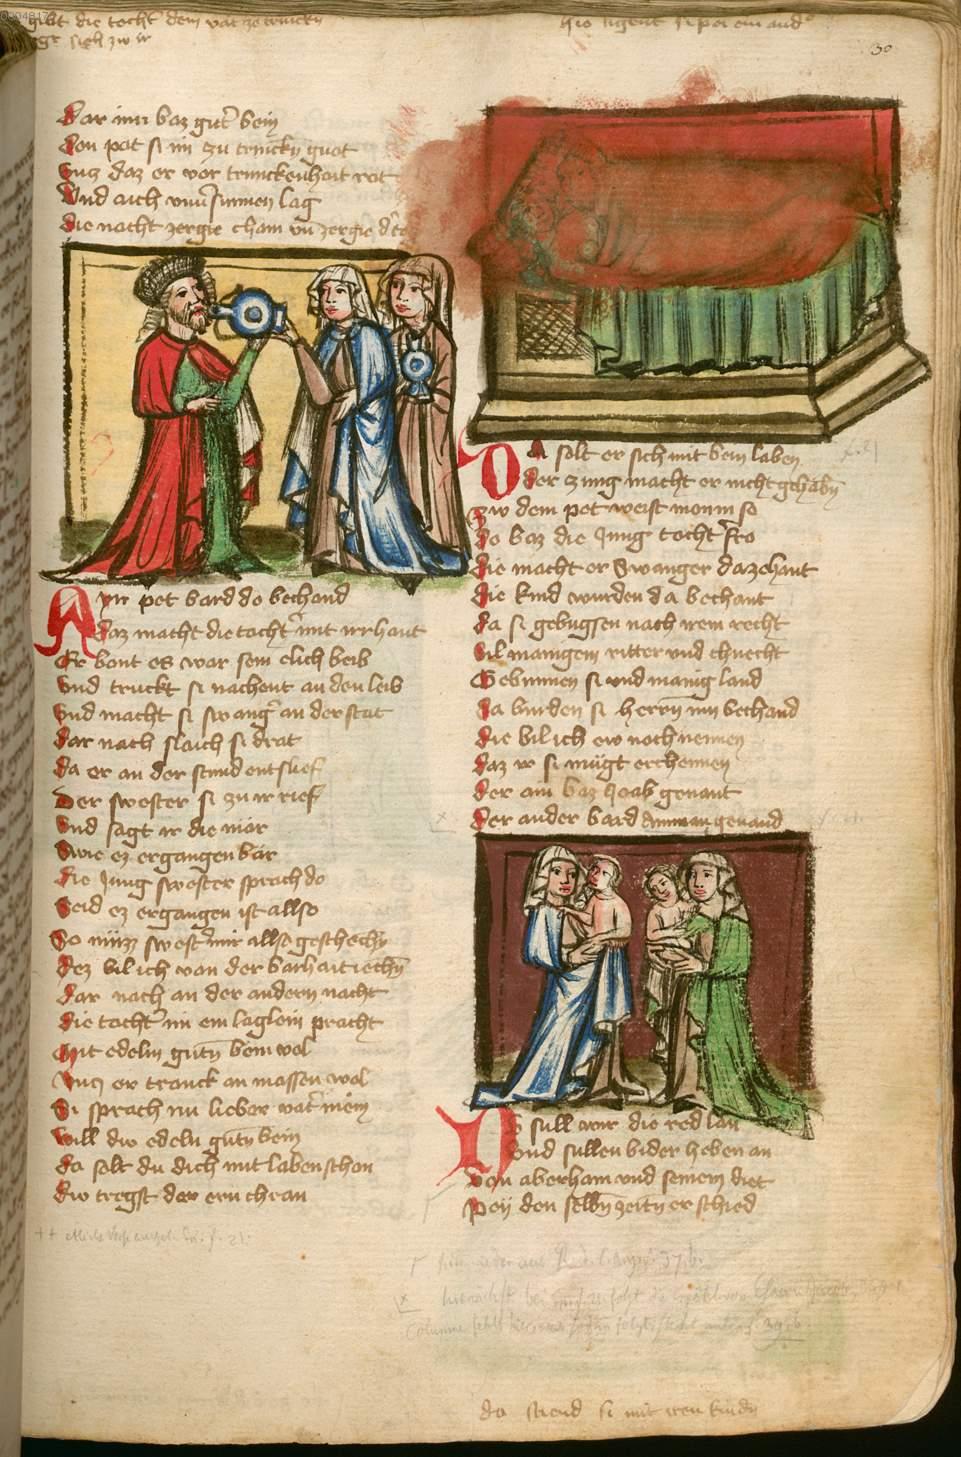 00048177
gibt die tocht dem vat ze trincken
sich zw ir
hie ligent si pei ein and
30
Dar inn baz gut bein
Den pot si im zu trincken guot
Uncz daz er vor trunckenhait rot
Und auch unversunnen lag
die nacht zergie cham un zergie der
Ayn pet bard do bechand
daz macht die tocht mit irr hant
Er bont es war sein elich beib
Und truckt si nachent an den leib
Und macht si swang an der stat
Dar nach slaich si drat
da er an der stund entslief
Der swester si zu ir rief
Und sagt ir die mär
Swie ez ergangen bär
die Jung swester sprach do
Seid ez ergangen ist allso
So müzz swest mir allso geschechn
dez bil ich von der barhait iechn
Dar nach an der andern nacht
die tocht im ein laglein pracht
Mit edelm gutn bein wol
Uncz er tranck an massen wol
Si sprach nu lieber vat mein
Will diw edeln gutn bein
da solt du dich mit laben schon
diw tregst der ern chran
DA solt er sich mit bein laben
der zung macht er nicht gehabn
zw dem pet weist mon in so
Do baz die Jung tocht fro
die macht er Swanger dazehant
die kind wurden da bechant
da si gebugsen nach irem recht
vil manigem ritter und chnecht
Gebunnen si und manig land
Da burden si herrn inn bechand
die bil ich ew noch nennen
daz ir si mügt erchennen
der ain baz Moab genant
der ander bard Amman genand
Nu sull wir die red lan
Und sullen bider heben an
von aberham und seinem diet
Pey den selbn zeitn er schied
da stend si mit iren kindn